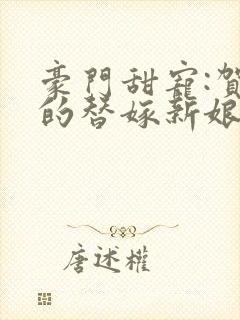 豪門甜寵:賀
的替嫁新娘
唐述權